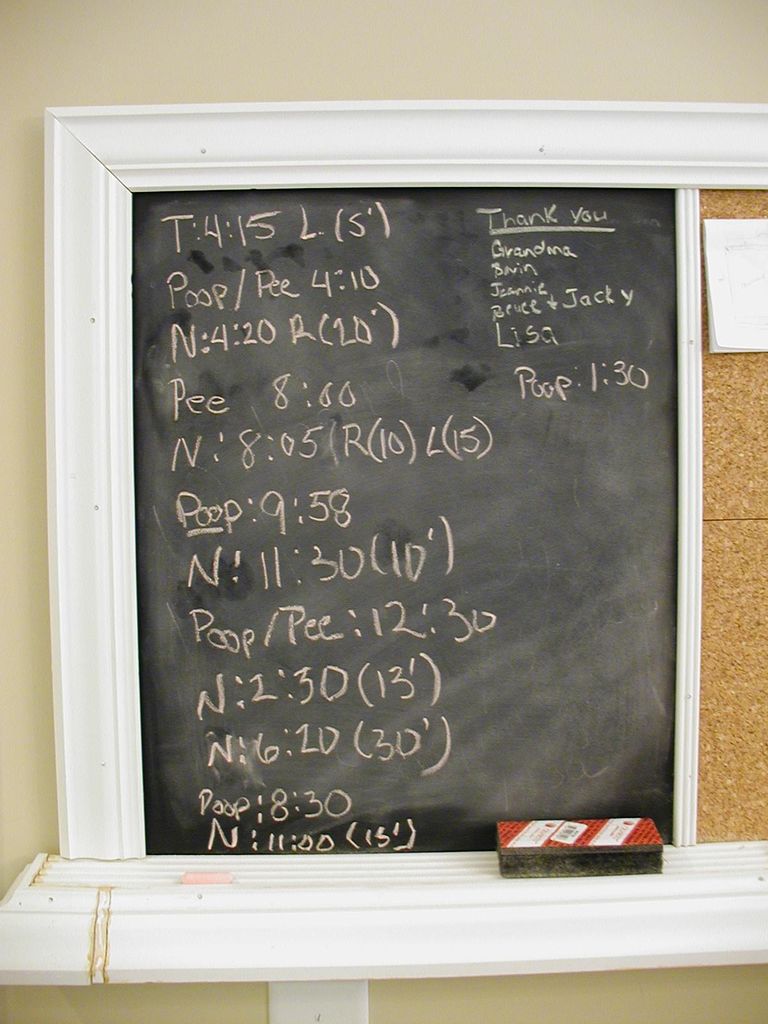 T:4:15 L (5')
Poop/Pee 4:10
N:4:20 R(20')
Pee 8:00
N:8:05 R(10) L(15)
Poop:9:58
N:11:30(10')
Poop/Pee:12:30
N:2:30(13')
N:6:20(30')
Poop:8:30
N:11:00(15')
Thank you
Grandma
Jeannie
Bruce + Jacky
Lisa
Poop:1:30